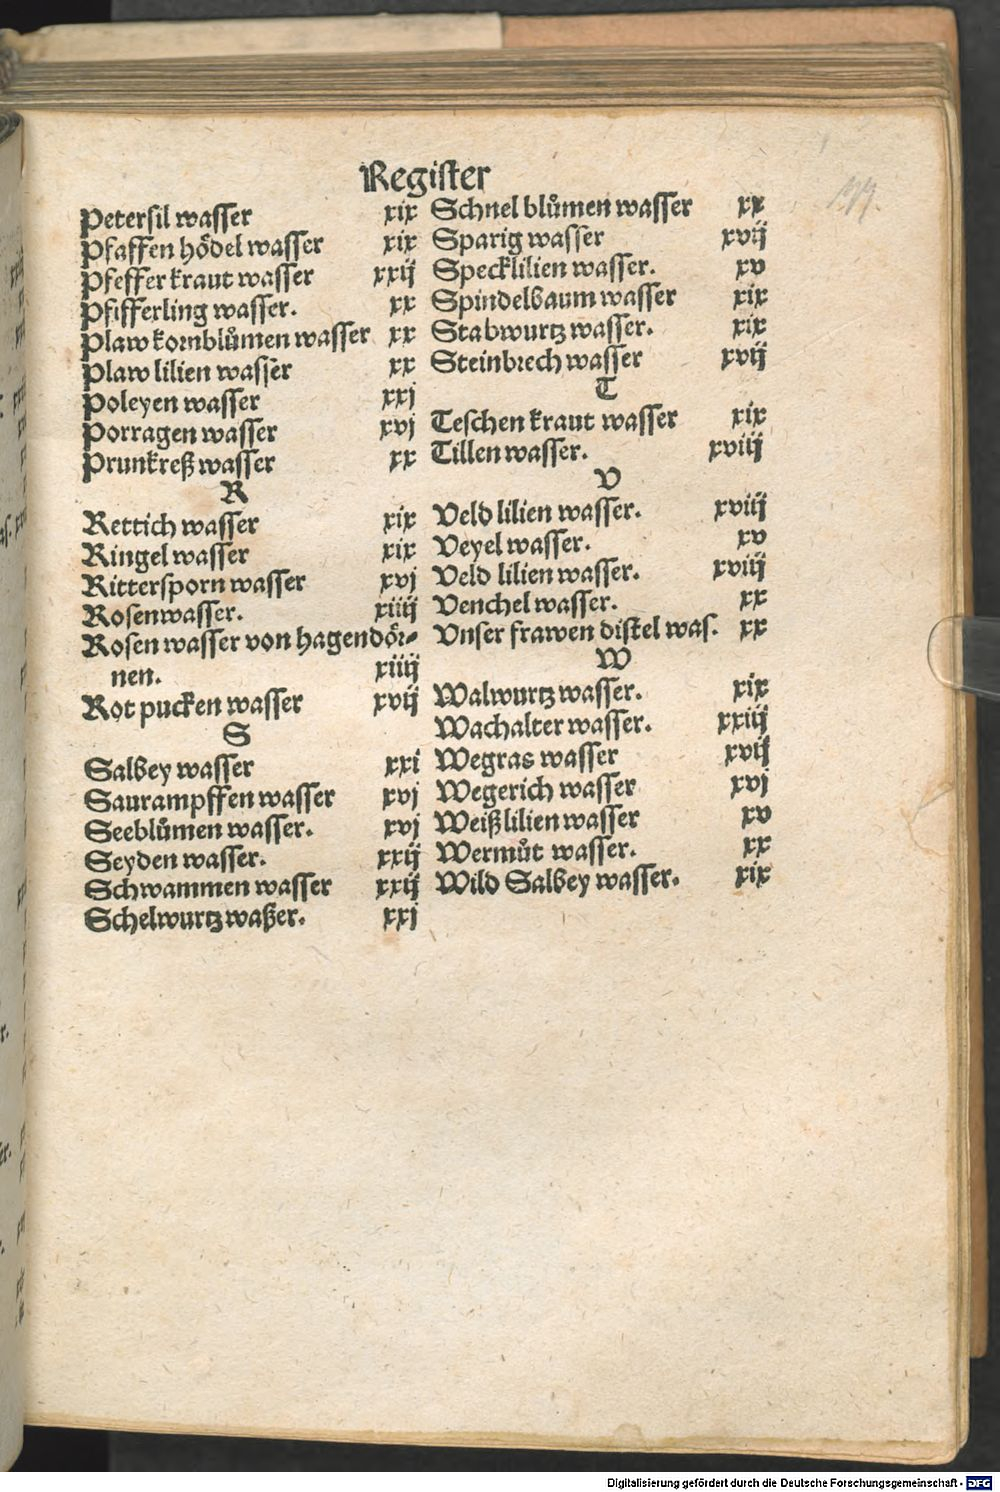 Register
Petersil wasser xix
Pfaffen hödel wasser xix
Pfeffer kraut wasser xxij
Pfifferling wasser. xx
Plaw kornblůmen wasser xx
Plaw lilien wasser xx
Poleyen wasser xxj
Porragen wasser xvj
Prunkreß wasser xx
R
Rettich wasser xix
Ringel wasser xix
Rittersporn wasser xvj
Rosenwasser. xiiij
Rosen wasser von hagendör⸗
nen. xiiij
Rot pucken wasser xvij
S
Salbey wasser xxi
Saurampffen wasser xvj
Seeblůmen wasser. xvj
Seyden wasser. xxij
Schwammen wasser xxij
Schelwurtz waßer. xxj
Schnel blůmen wasser xx
Sparig wasser xvij
Specklilien wasser. xv
Spindelbaum wasser xix
Stabwurtz wasser. xix
Steinbrech wasser xvij
T
Teschen kraut wasser xix
Tillen wasser. xviij
V
Veld lilien wasser. xviij
Veyel wasser. xv
Veld lilien wasser. xviij
Venchel wasser. xx
Vnser frawen distel was. xx
W
Walwurtz wasser. xix
Wachalter wasser. xxiij
Wegras wasser xvij
Wegerich wasser xvj
Weiß lilien wasser xv
Wermůt wasser. xx
Wild Salbey wasser. xix
Digitalisierung gefördert durch die Deutsche Forschungsgemeinschaft - DFG